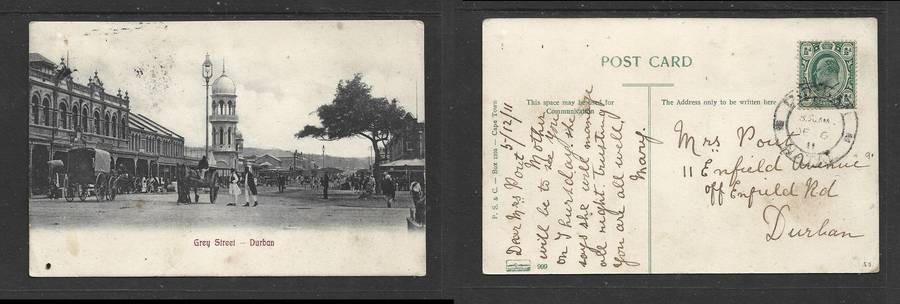 Grey Street – Durban
POST CARD
This space may be used for
Communication
The Address only to be written here
P. S. & C. – Box – Cape Town
5/12/11
Dear Mrs Pout
Mother
will be to see you
on Thursday, she
says she will manage
all right. trusting
you are all well,
Mary.
Mrs Pout
"11 Enfield Avenue"
Off Enfield Rd
Durban
909